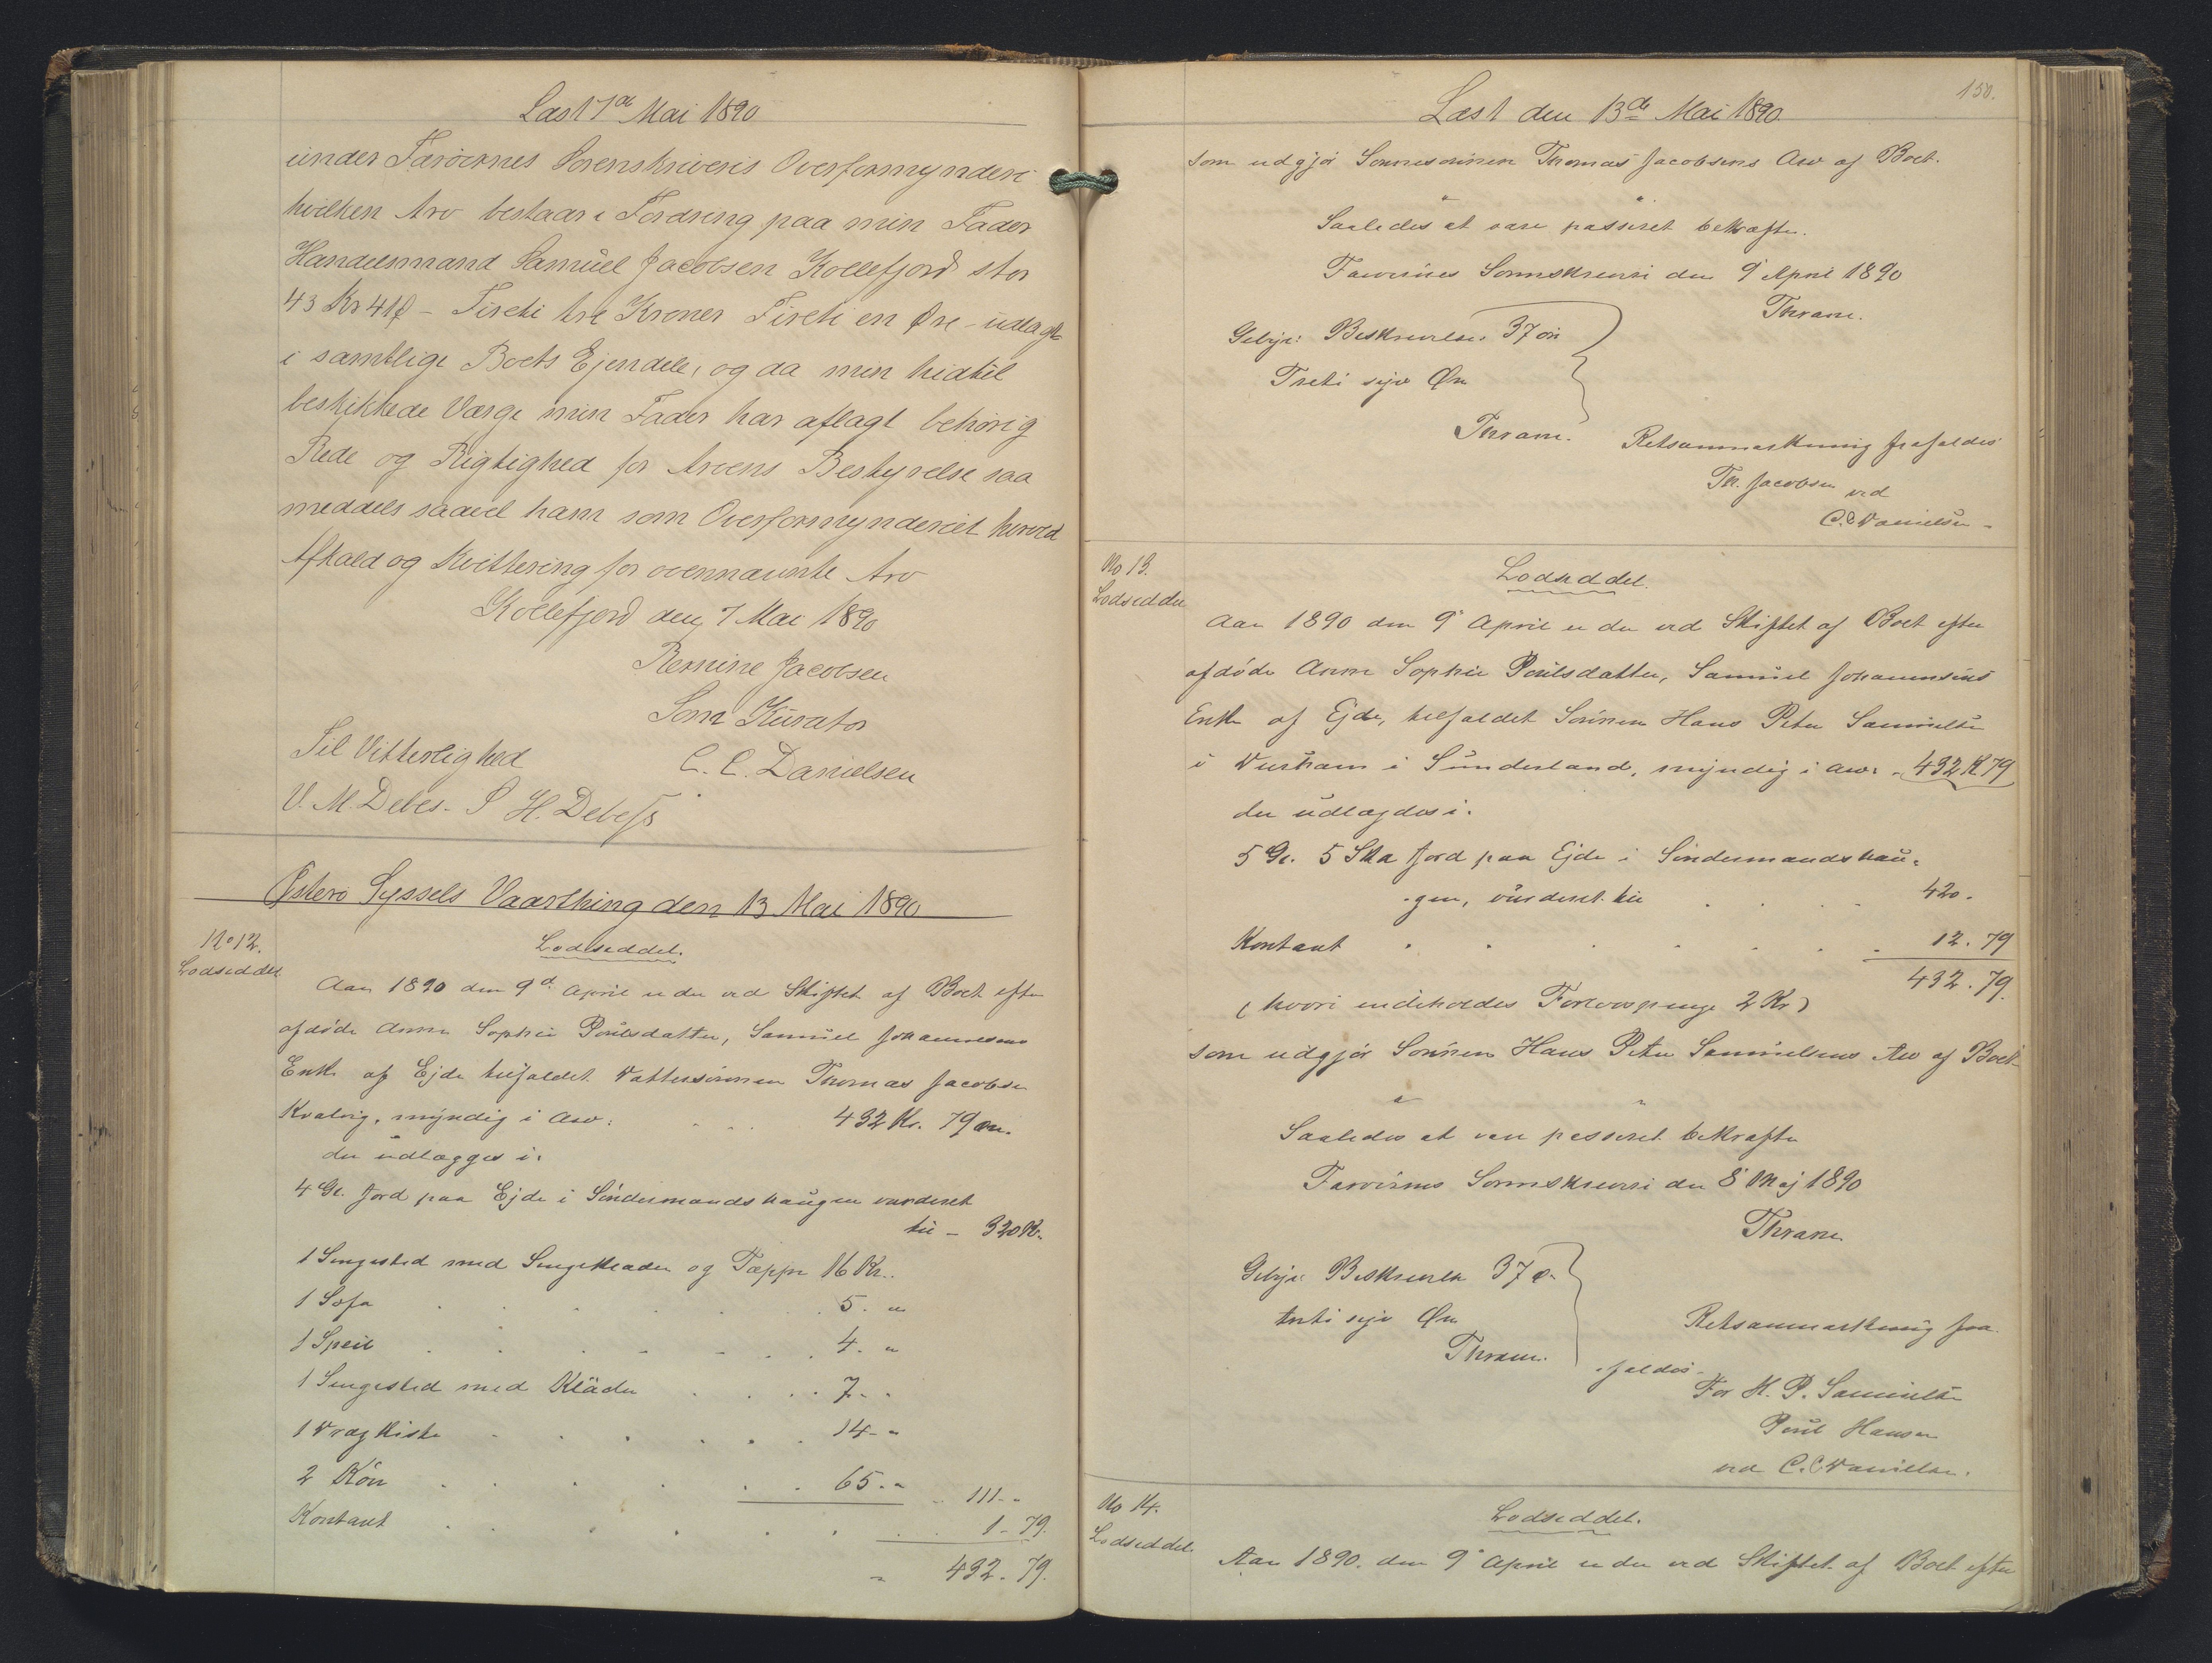 Læst 7de Mai 1890
under Færöernes Sorenskriveris Overformynderi
hvilken Arv bestaar i Fordring paa min Fader
Handelsmand Samuel Jacobsen Kollefjord stor
43 Kr 41 Ø – Fireti tre Kroner Fireti en Øre – udlagt
i samtlige Boets Ejendele, og da min hidtil
beskikkede Værge min Fader har aflagt behörig
Rede og Rigtighed for Arvens Bestyrelse saa
meddeles saavel ham som Overformynderiet herved
Afkald og Kvittering for ovennævnte Arv
Kollefjord den 7 Mai 1890
Remine Jacobsen
Som Kurator
Til Vitterlighed
C. C. Danielsen
V. M. Debes. P H. Debess
Østerö Syssels Vaarthing den 13 Mai 1890
No 12.
Lodseddel
Lodseddel.
Aar 1890 den 9d April er der ved Skiftet af Boet efter
afdöde Anna Sophie Poulsdatter, Samuel Johannesens
Enke af Ejde tilfaldet Dattersönnen Thomas Jacobsen
Kvalvig, myndig i Arv: 432 Kr. 79 øre.
der udlægges i:
4 Gl. Jord paa Ejde i Söndermandshaugen vurderet
til – 320 Kr.
1 Sengested med Sengeklæder og Tæppe 16 Kr.
1 Sofa 5. "
1 Speil 4. "
1 Sengested med Klæder 7. "
1 Dragkiste 14 - "
2 Köer 65. " 111 - "
Kontant 1 - 79.
" 432. 79.
150.
Læst den 13de Mai 1890.
som udgjör Sönnesönnen Thomas Jacobsens Arv af Boet.
Saaledes at være passeret bekræfter.
Færöernes Sorenskriveri den 9 April 1890
Thrane.
Gebyr: Beskrivelse 37 øre
Treti syv Øre
Thrane.
Retsanmærkning frafaldes
Th. Jacobsen ved
C. C Danielsen –
No 13.
Lodseddel
Lodseddel.
Aar 1890 den 9' April er der ved Skiftet af Boet efter
afdöde Anna Sophie Poulsdatter, Samuel Johannesens
Enke af Ejde, tilfaldet Sönnen Hans Peter Samuelsen
i Durham i Sunderland, myndig i Arv: - 432 K 79
der udlægdes i:
5 Gl. 5 Ska Jord paa Ejde i Söndermandshau-
-gen, vurderet til 420.
Kontant 12. 79
432. 79.
(hvori indeholdes Forlovspenge 2 Kr)
som udgjör Sönnen Hans Peter Samuelsens Arv af Boet
Saaledes at være passeret bekræfter
Færöernes Sorenskriveri den 8' Maj 1890
Thrane.
Gebyr: Beskrivelse 37 ø.
treti syv Øre
Thrane.
Retsanmærkning fra-
-faldes.
For H. P. Samuelsen
Poul Hansen
ved C. C Danielsen.
No 14.
Lodseddel.
Lodseddel.
Aar 1890. den 9' April er der ved Skiftet af Boet efter